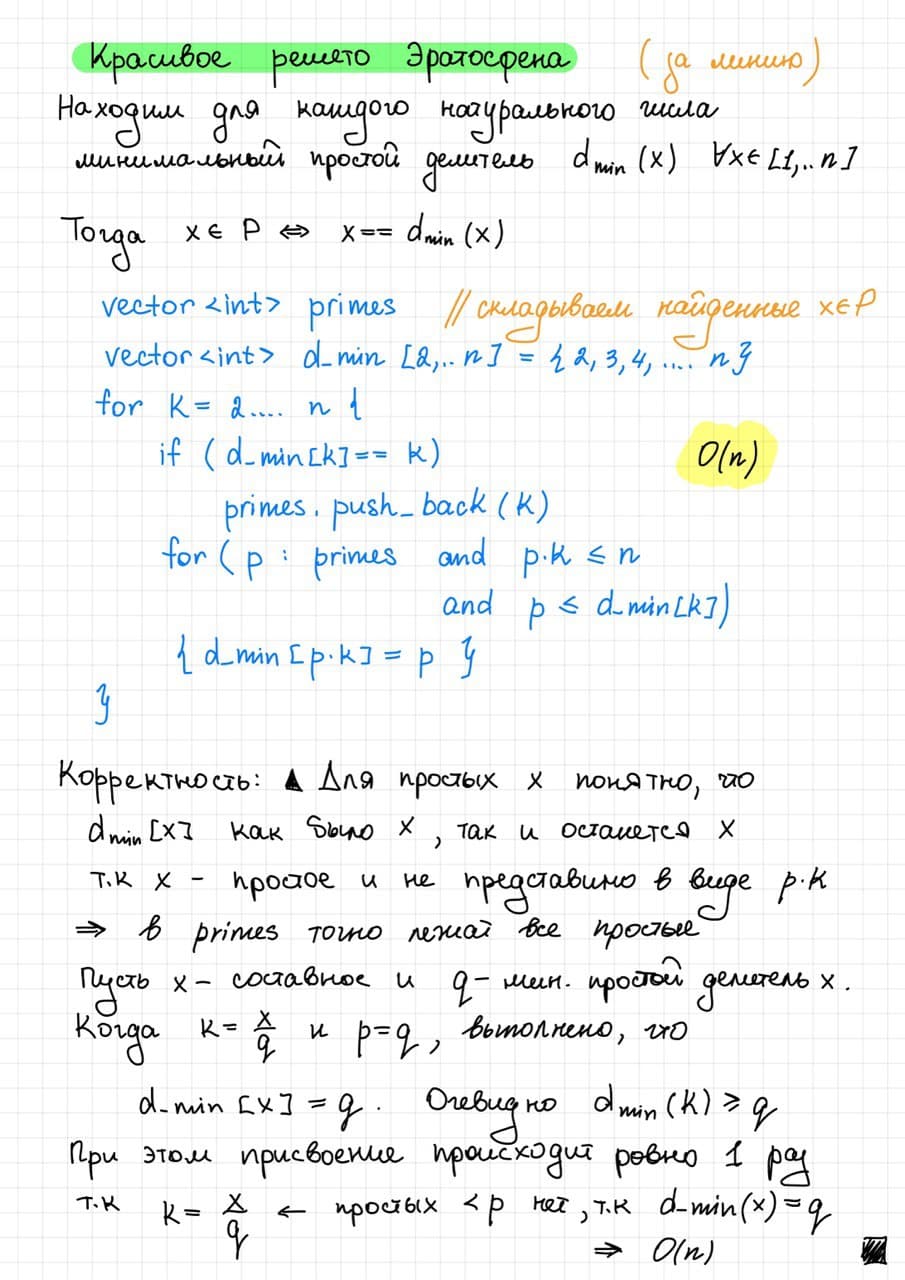 Красивое решето Эратосфена (за линию)
Находим для каждого натурального числа
минимальный простой делитель d_min (x) ∀x∈[1,..n]
Тогда x∈P ⇔ x== d_min (x)
vector <int> primes // складываем найденные x∈P
vector <int> d_min [2,.. n] = {2,3,4,.... n}
for k= 2.... n {
if (d_min[k]== k)
O(n)
primes. push_back (k)
for (p : primes and p·k ≤ n
and p ≤ d_min[k])
{ d_min [p·k] = p }
}
Корректность: ▲ Для простых x понятно, что
d_min [x] как было x, так и останется x
т.к x - простое и не представимо в виде p·k
⇒ в primes точно лежат все простые
Пусть x - составное и q - мин. простой делитель x.
Когда k= x/q и p=q, выполнено, что
d_min [x] = q. Очевидно d_min (k) ≥ q
При этом присвоение происходит ровно 1 раз
т.к k= x/q ← простых < p нет, т.к d_min(x)=q
⇒ O(n) ■